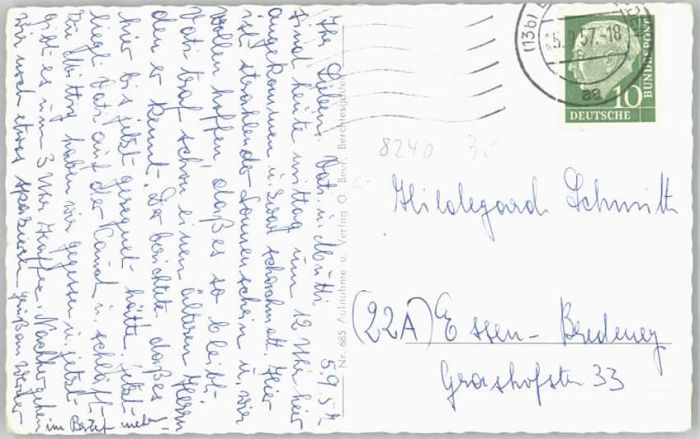 5.9.57.
Ihr Lieben. Vati u. Mutti
sind heute mittag um 12 Uhr hier
angekommen u. zwar schwarz matt. Hier
ist strahlender Sonnenschein u. wir
wollen hoffen, daß es so bleibt.
Vati traf schon einen älteren Herrn
den er kennt. Der berichtete daß es
hier bis jetzt geregnet hätte. Jetzt
liegt Vati auf der Couch u. schläft.
Zu Mittag haben wir gegessen u. jetzt
gibt es um 3 Uhr Kaffee. Nachher gehen
wir noch etwas spazieren
im Brief mehr
Nr. 685 Aufnahme u. Verlag O. Berchtesgaden
(13b)
5.9.57.-18
aa
10
DEUTSCHE
BUNDESPOST
8240
Hildegard Schmitt
(22A) Essen-Bredeney
Grashofstr 33